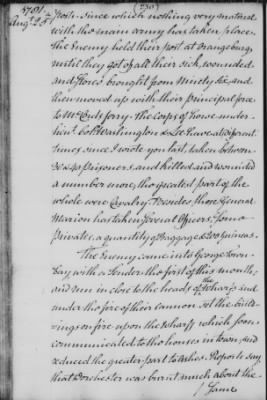 1781.
Aug. 25
(230)
Posts. since which nothing very material
with the main army has taken place.
The Enemy held their post at Orangeburg,
until they got off all their sick, wounded,
and stores brought from Ninety Six, and
then moved up with their principal force
to McCords ferry. The corps of horse under
Lieut. Cols. Washington & Lee have at different
times since I wrote you last, taken between
prisoners, and killed and wounded
a number more, the greatest part of the
whole were Cavalry. Besides, those General
Marion has taken several Officers, some
Privates, a quantity of Baggage & 200 Guineas.
The Enemy came into George Town
bay with a Tender the first of this month,
and run in close to the heads of the Wharf and
under the fire of their cannon set the build-
ings on fire upon the Wharf which soon
communicated to the houses in town; and
reduced the greater part to Ashes. Reports say
that Dorchester was burnt much about the
/ Same